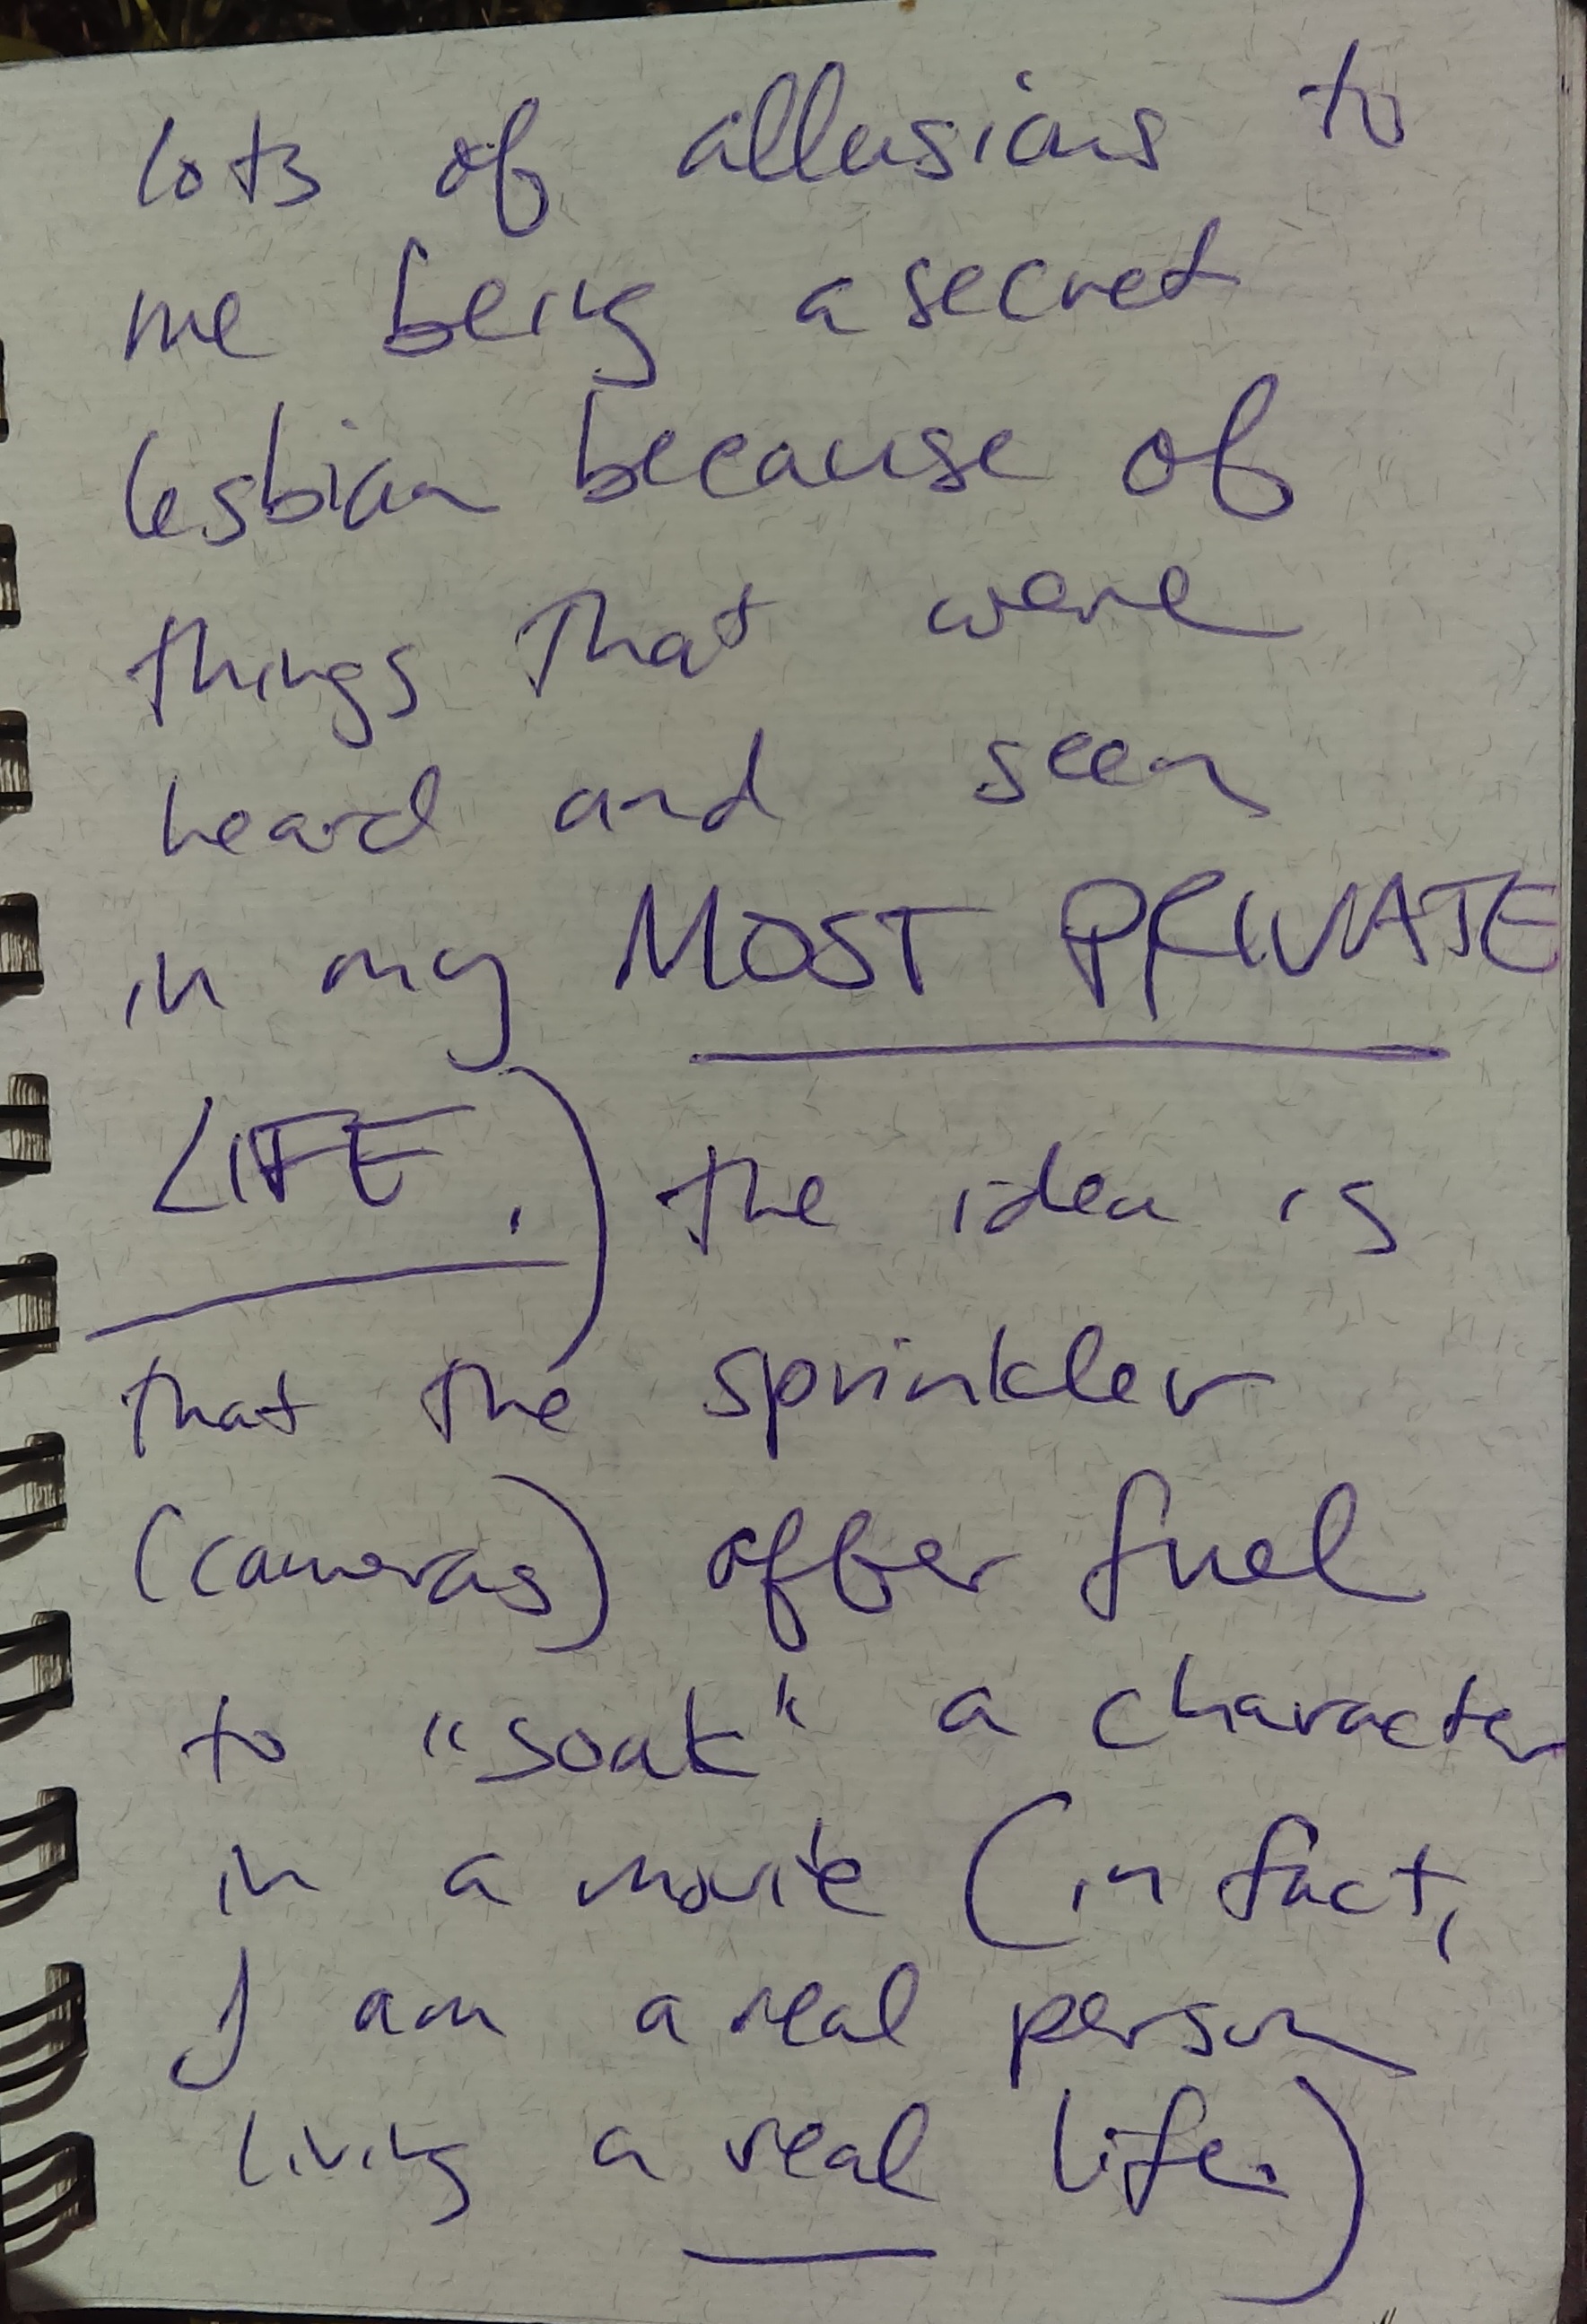 lots of allusions to
me being a secret
lesbian because of
things that were
heard and seen
in my MOST PRIVATE
LIFE.) the idea is
that the sprinkler
(cameras) offer fuel
to "soak" a character
in a movie (in fact,
I am a real person
living a real life.)